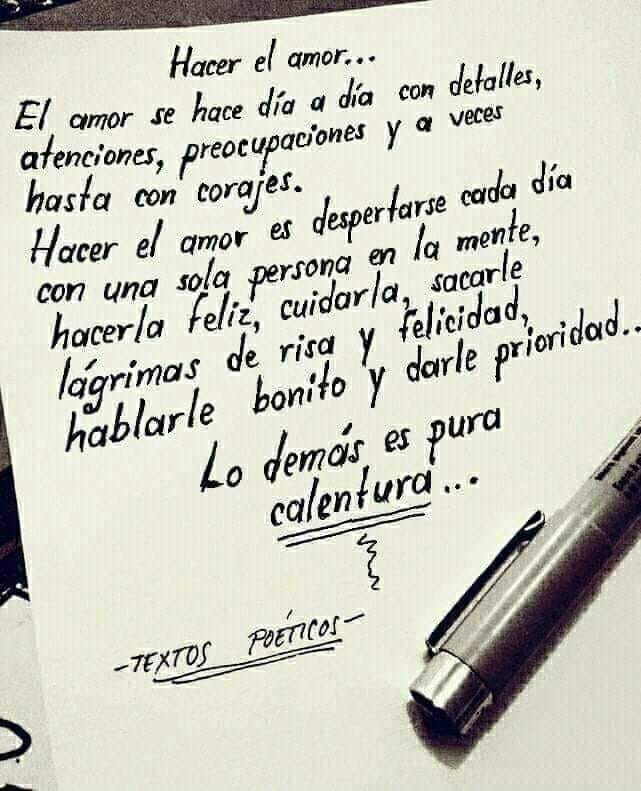 Hacer el amor...
El amor se hace día a día con detalles,
atenciones, preocupaciones y a veces
hasta con corajes.
Hacer el amor es despertarse cada día
con una sola persona en la mente,
hacerla feliz, cuidarla, sacarle
lágrimas de risa y felicidad,
hablarle bonito y darle prioridad..
Lo demás es pura
calentura...
-TEXTOS POÉTICOS-